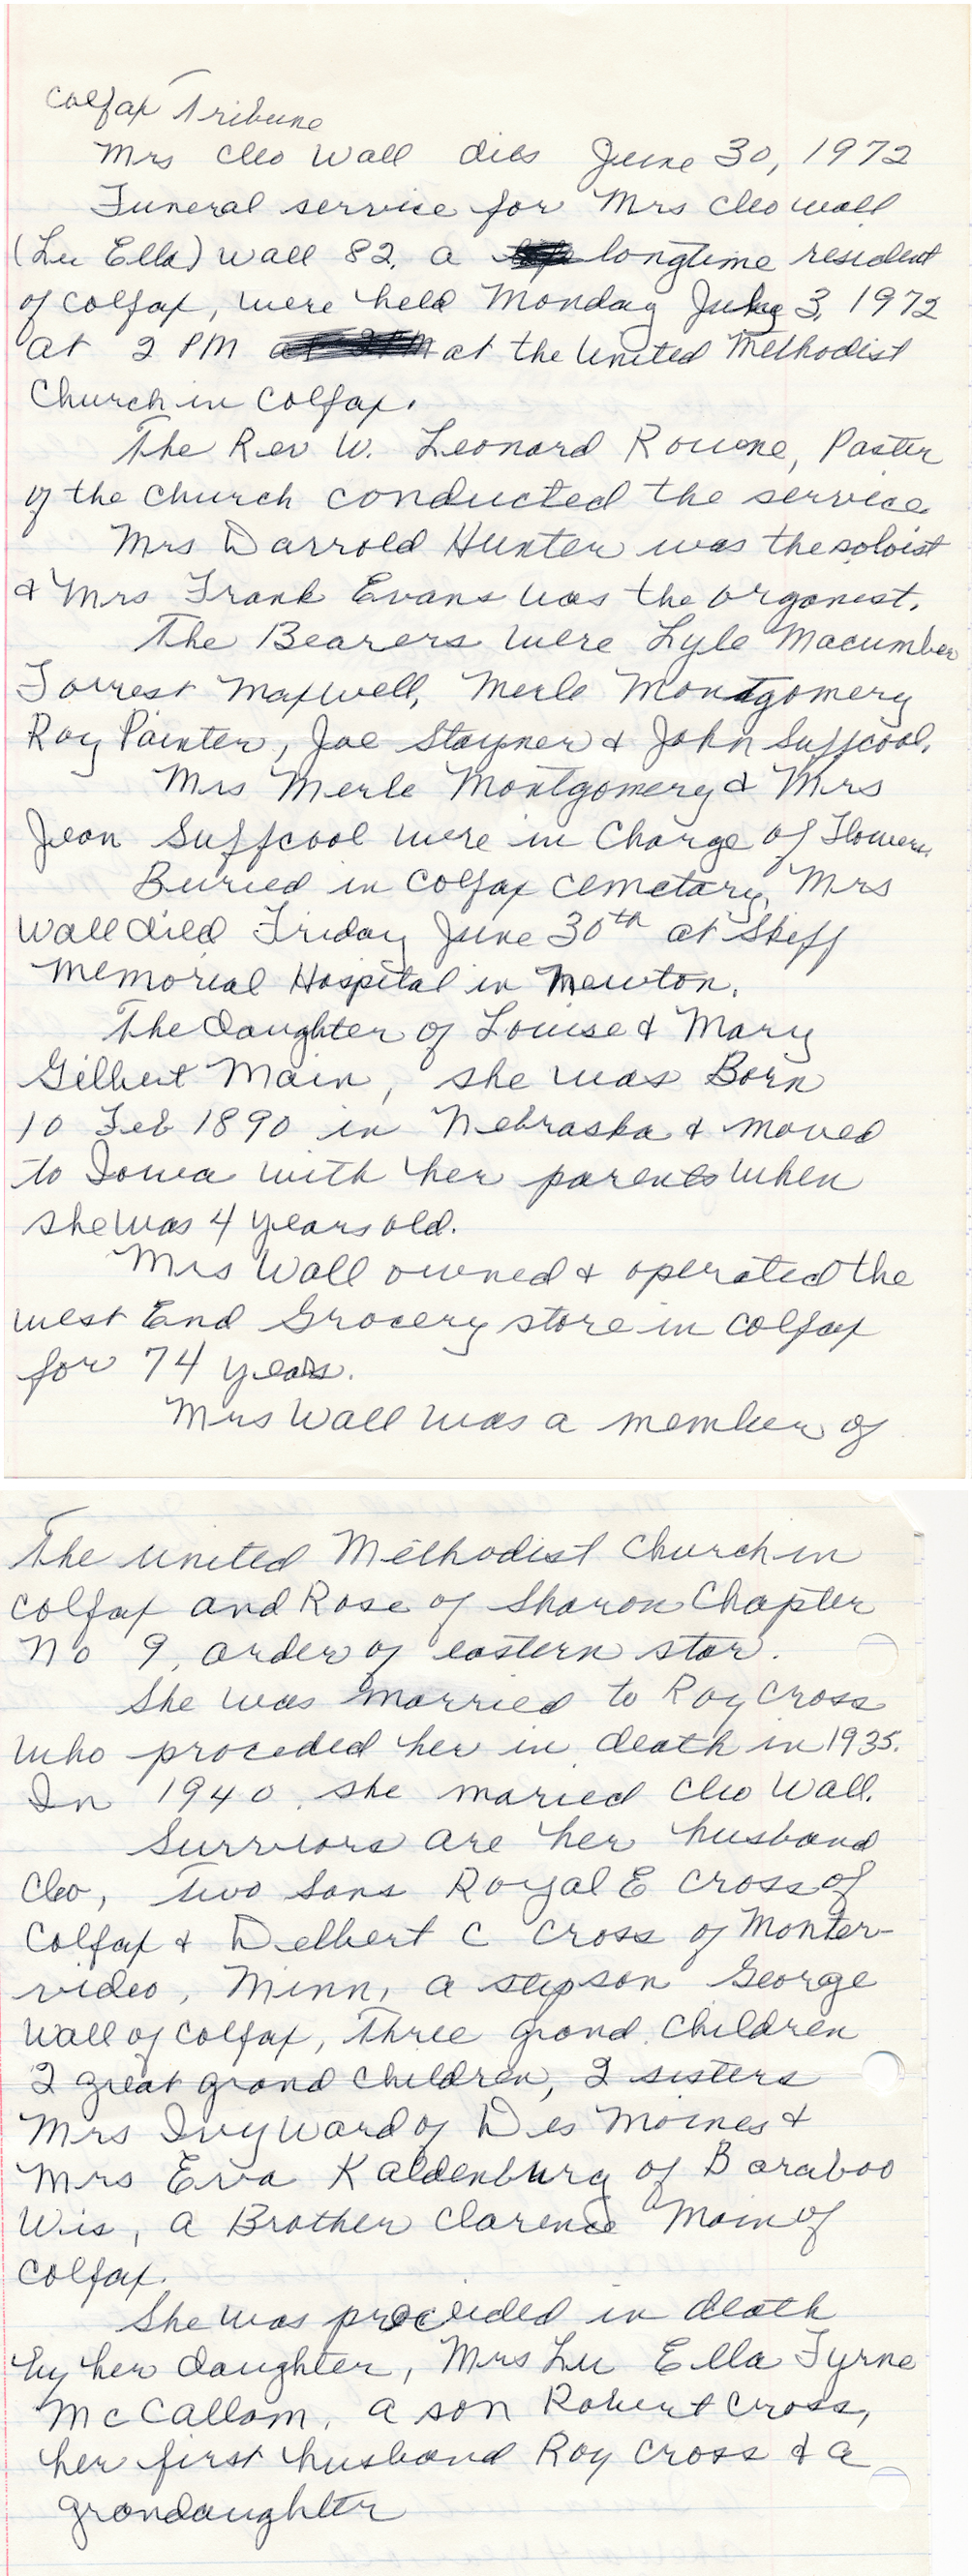 Colfax Tribune
Mrs Cleo Wall dies June 30, 1972
Funeral service for Mrs Cleo Wall
(Lu Ella) Wall 82, a longtime resident
of Colfax, were held Monday July 3, 1972
at 2 PM at the United Methodist
Church in Colfax.
The Rev W. Leonard Rowne, Paster
of the Church conducted the service.
Mrs Darrold Hunter was the soloist
& Mrs Frank Evans was the organest.
The Bearers were Lyle Macumber
Forrest Maxwell, Merle Montgomery
Roy Painter, Joe Stayner & John Suffcool.
Mrs Merle Montgomery & Mrs
Jean Suffcool were in Charge of Flowers.
Buried in Colfax Cemetary, Mrs
Wall died Friday June 30th at Skiff
Memorial Hospital in Newton.
The Daughter of Louise & Mary
Gilbert Main, she was Born
10 Feb 1890 in Nebraska & moved
to Iowa with her parents when
she was 4 years old.
Mrs Wall owned & operated the
West End Grocery store in Colfax
for 74 years.
Mrs Wall was a member of
The United Methodist Church in
Colfax and Rose of Sharon Chapter
No 9, order of eastern star.
She was married to Roy Cross
who proceded her in death in 1935.
In 1940, she maried Cleo Wall.
Surviors are her husband
Cleo, Two sons Royal E Cross of
Colfax & Delbert C Cross of Monter-
video, Minn, a stepson George
Wall of Colfax, Three grand children
2 great grand children, 2 sisters
Mrs Ivy Ward of Des Moines &
Mrs Eva Kaldenburg of Baraboo
Wis, a Brother Clarence Main of
Colfax.
She was proceeded in death
by her daughter, Mrs Lu Ella Fyrne
McCallom, a son Robert Cross,
her first husband Roy Cross & a
grondaughter